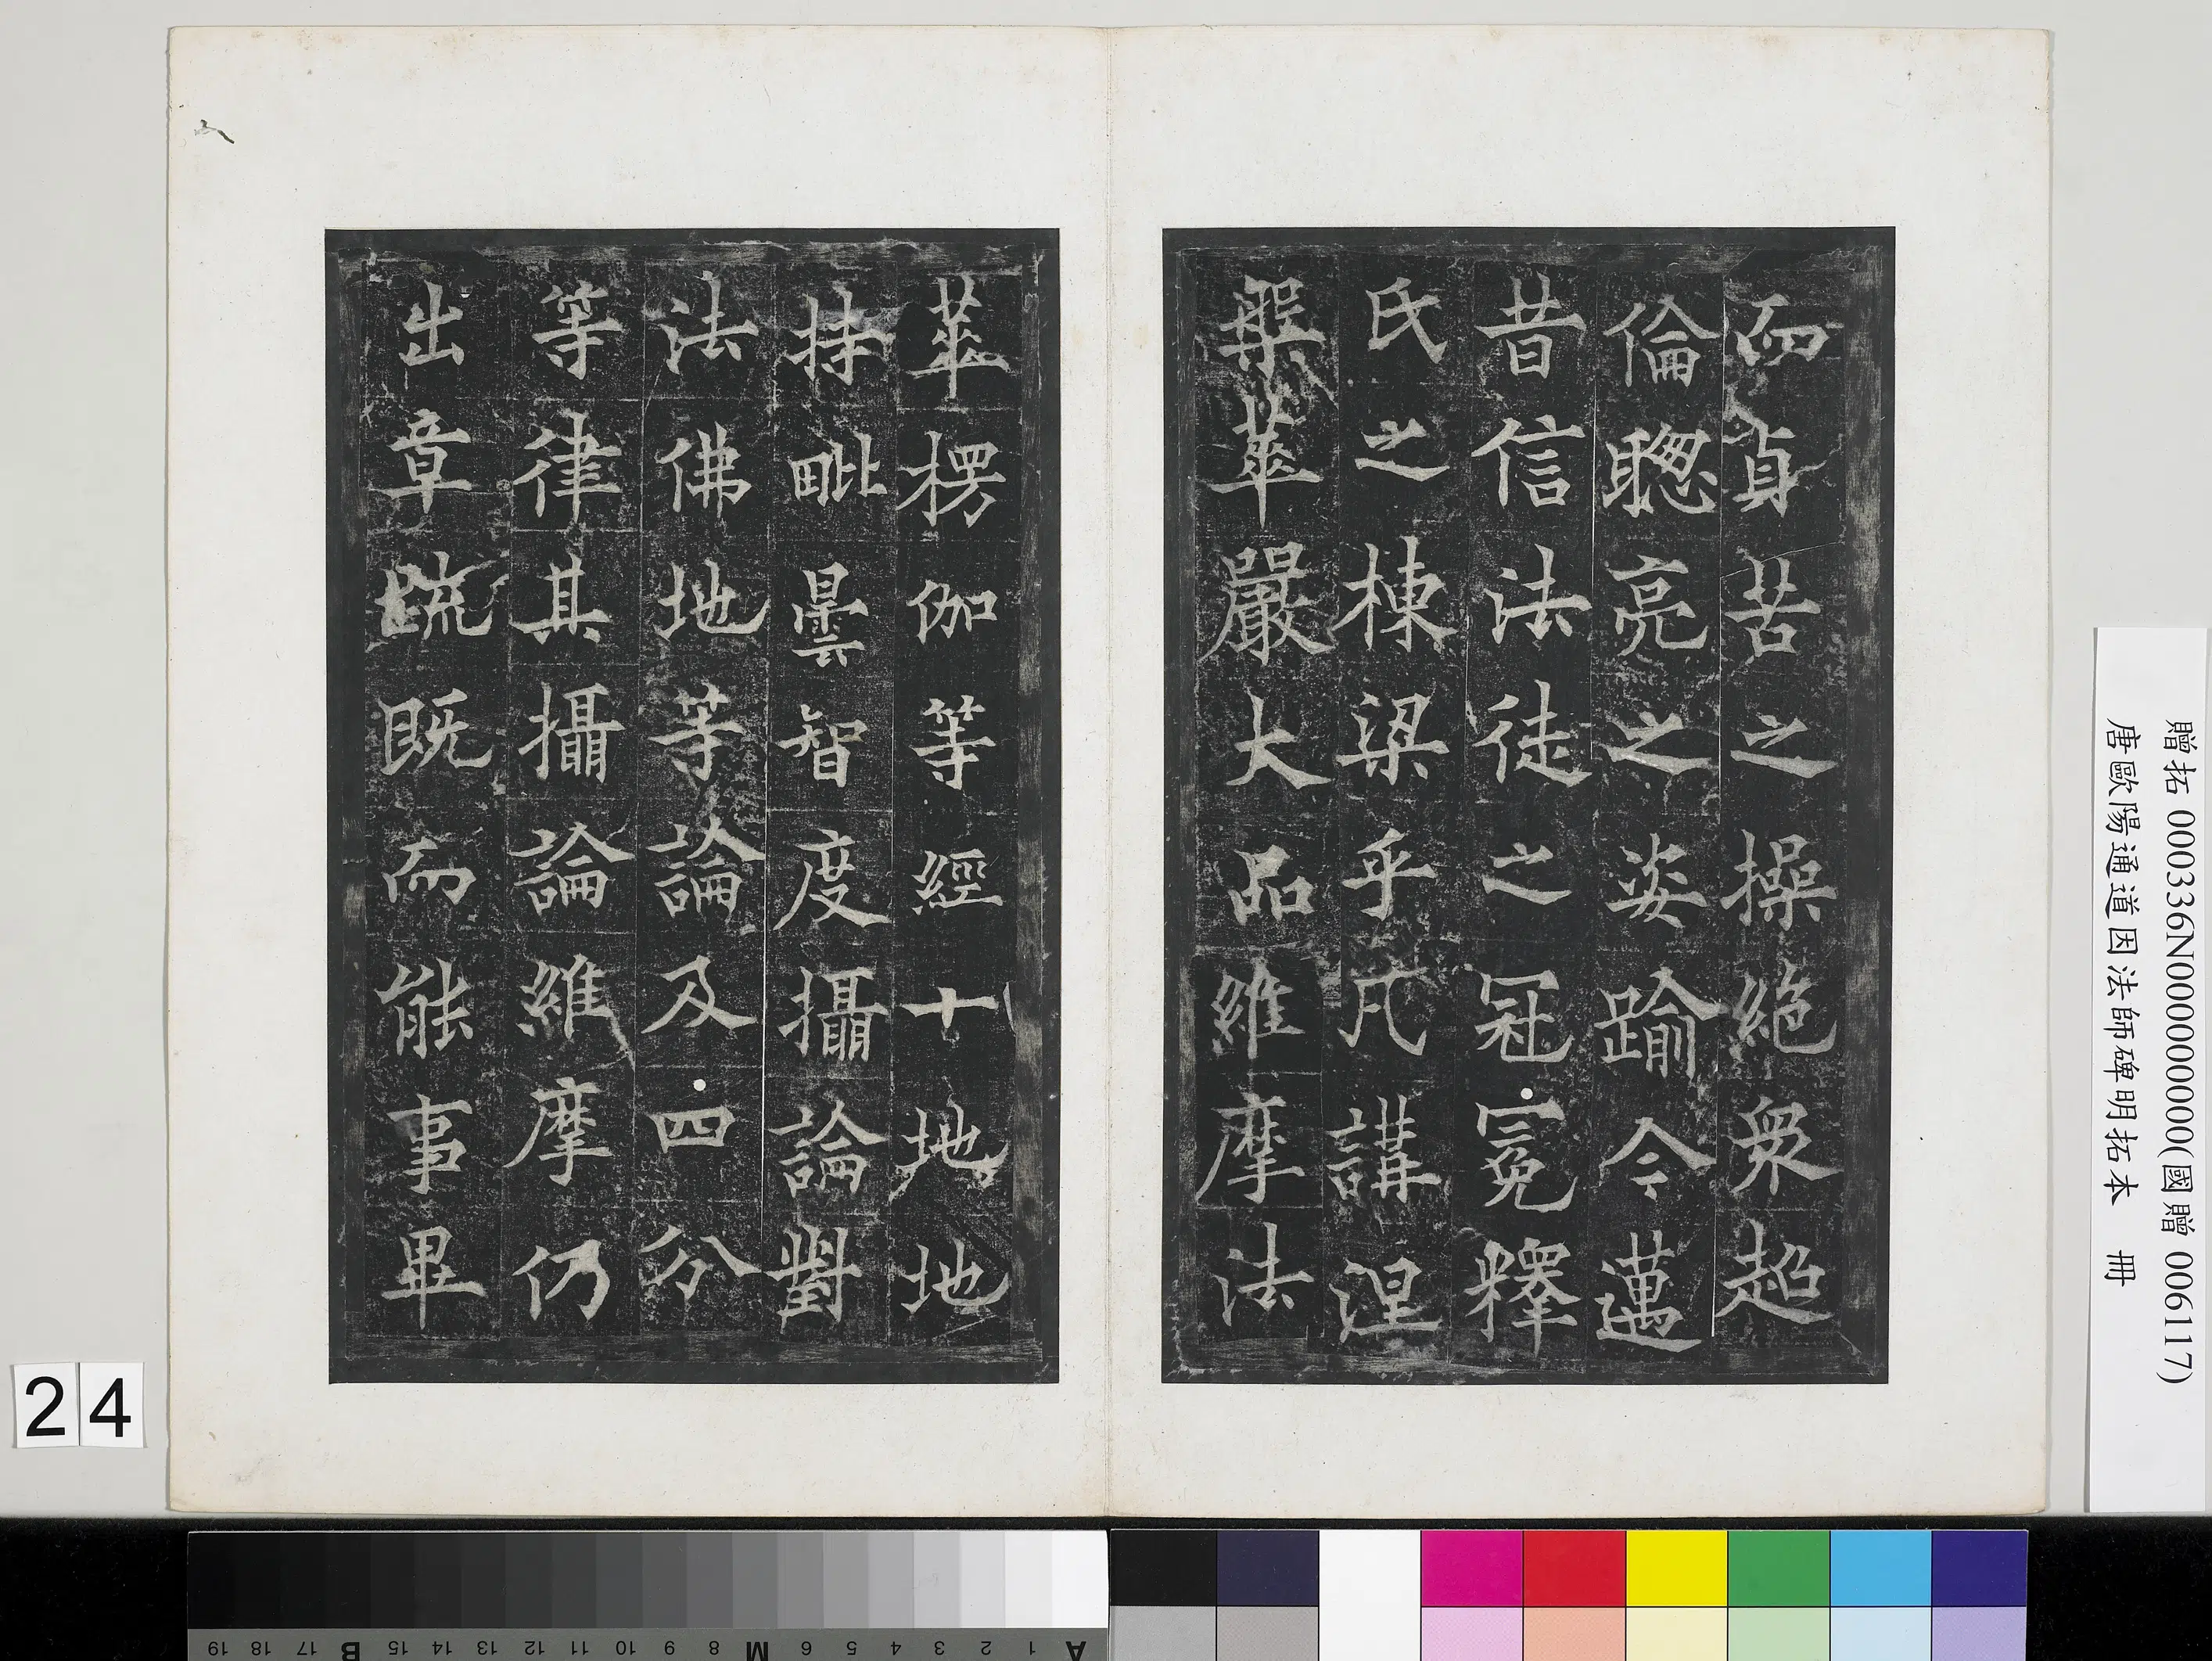 而貞苦之操絶衆超
倫聰亮之姿踰今邁
昔信法徒之冠冕釋
氏之棟梁乎凡講涅
槃華嚴大品維摩法
華楞伽等經十地地
持毗曇智度攝論對
法佛地等論及四分
等律其攝論維摩仍
出章疏既而能事畢
贈拓 000336N000000000(國贈 006117)
唐歐陽通道因法師碑明拓本 冊
24
19 18 17 B 15 14 13 12 11 10 9 8 M 6 5 4 3 2 1 A